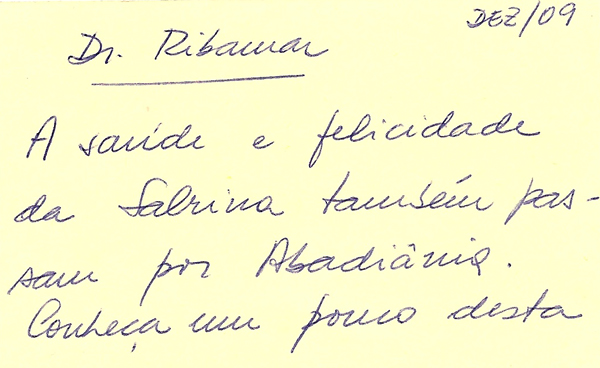 DEZ/09
Dr. Ribamar
A saúde e felicidade
da Sabrina também pas-
sam por Abadiânia.
Conheça um pouco desta